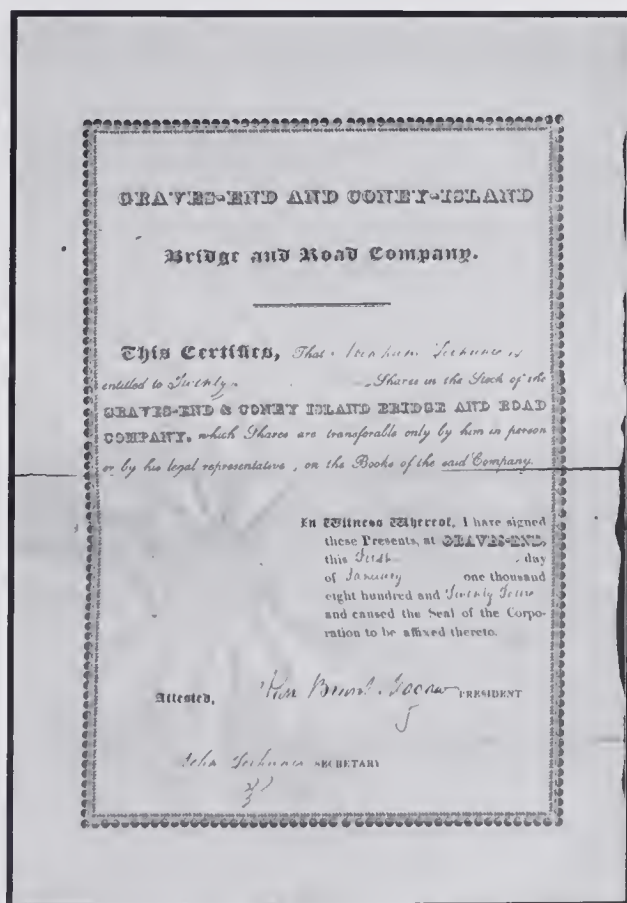 GRAVES-END AND CONEY-ISLAND
Bridge and Road Company.
This Certifies, That Abraham Terhune is
entitled to Twenty Shares in the Stock of the
GRAVES-END & CONEY ISLAND BRIDGE AND ROAD
COMPANY, which Shares are transferable only by him in person
or by his legal representative, on the Books of the said Company.
In Witness Whereof, I have signed
these Presents, at GRAVES-END,
this First day
of January one thousand
eight hundred and Twenty Four
and caused the Seal of the Corpo-
ration to be affixed thereto.
Attested, PRESIDENT
John Terhune SECRETARY